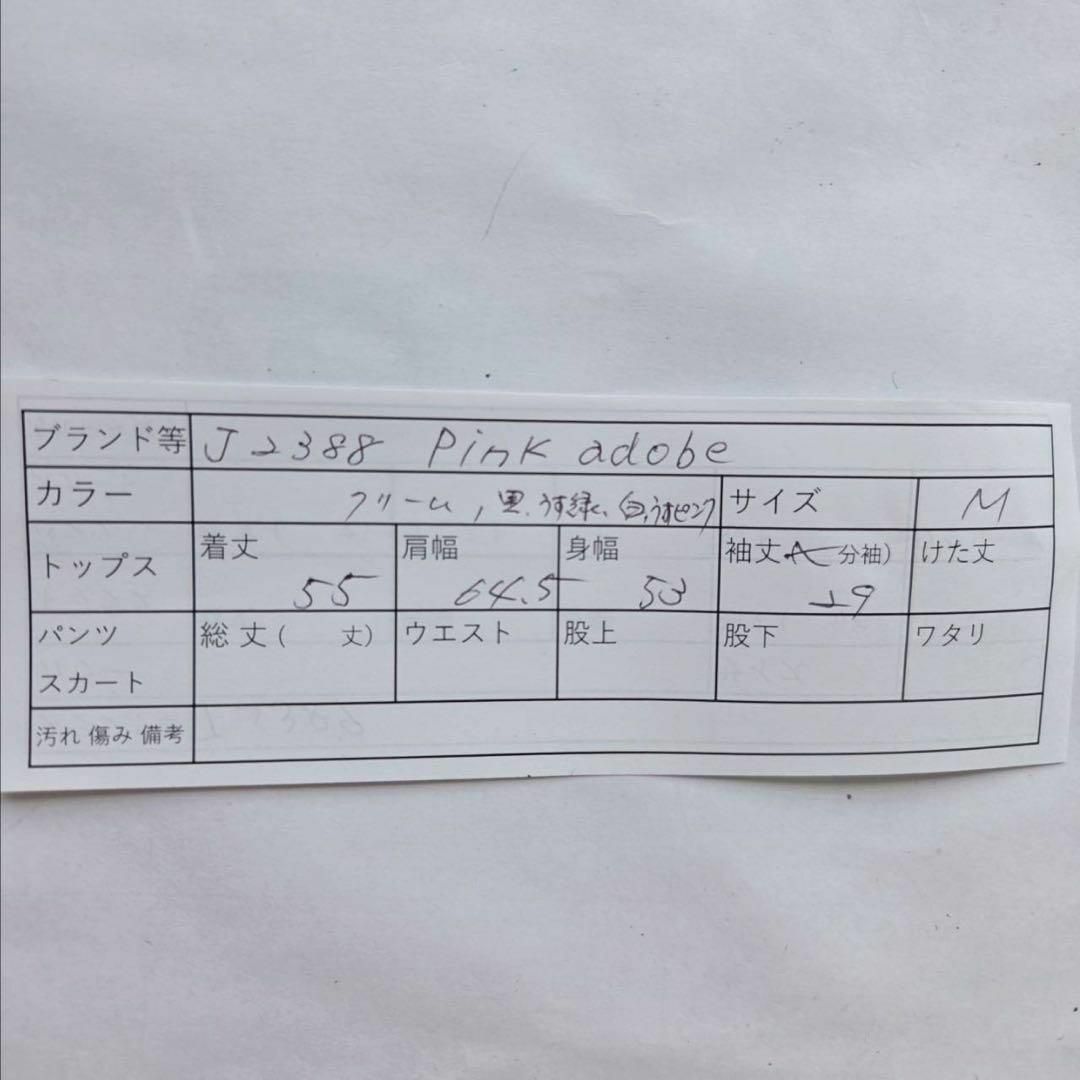 ブランド等 J2388 Pink adobe
カラー クリーム, 黒、うす緑、白、うすピンク サイズ M
トップス 着丈 55 肩幅 64.5 身幅 53 袖丈 分袖) 29 けた丈
パンツ スカート 総丈( 丈) ウエスト 股上 股下 ワタリ
汚れ 傷み 備考